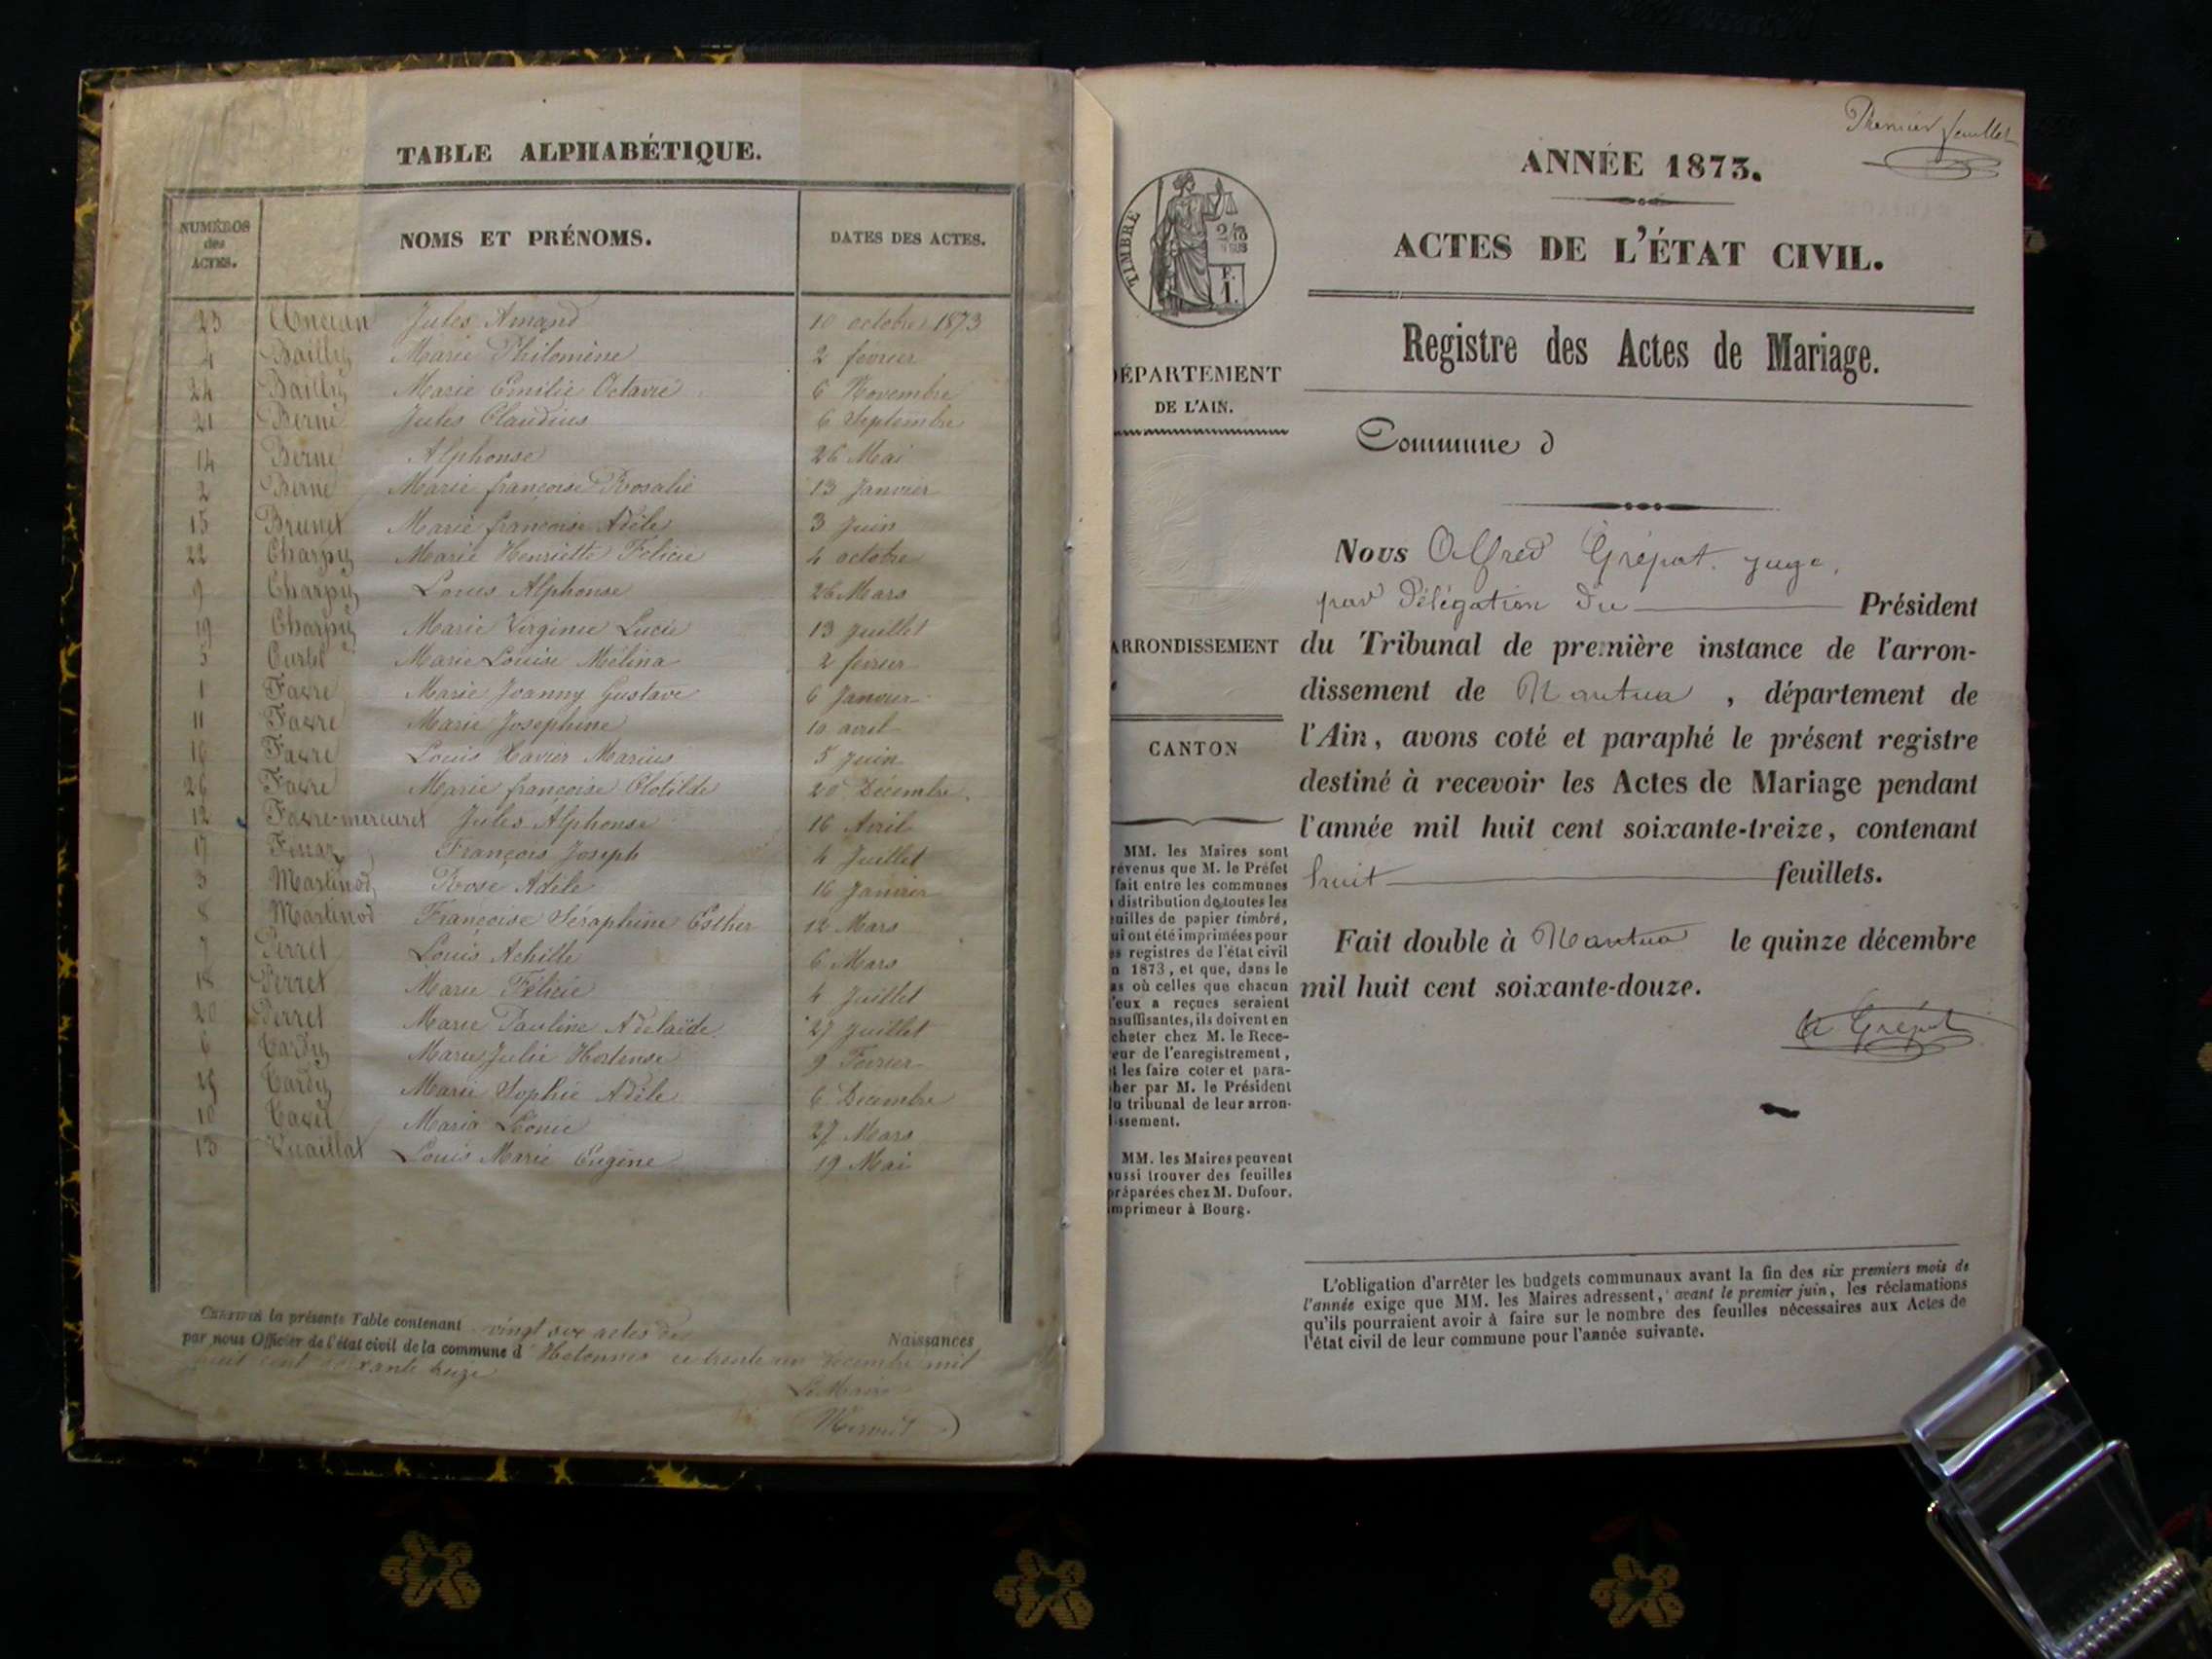 TABLE ALPHABÉTIQUE.
NUMÉROS des ACTES. NOMS ET PRÉNOMS. DATES DES ACTES.
23 Ancian Jules Amand 10 octobre 1873
4 Bailly Marie Philomène 2 fevrier
24 Bailly Marie Emilie Octavie 6 Novembre
21 Berne Jules Claudius 6 Septembre
14 Berne Alphonse 26 Mai
2 Berne Marie françoise Rosalie 13 Janvier
15 Brunet Marie françoise Adèle 3 Juin
22 Charpy Marie Henriette Félicie 4 octobre
9 Charpy Louis Alphonse 26 Mars
19 Charpy Marie Virginie Lucie 13 Juillet
5 Curtet Marie Louise Mélina 2 fevrier
1 Favre Marie Joanny Gustave 6 Janvier
11 Favre Marie Josephine 10 avril
16 Favre Louis Xavier Marius 5 Juin
26 Favre Marie françoise Clotilde 20 Décembre
12 Favre-mercuret Jules Alphonse 16 Avril
17 François Joseph 4 Juillet
3 Martinod Rose Adèle 16 Janvier
8 Martinod Françoise Séraphine Esther 12 Mars
7 Perret Louis Achille 6 Mars
18 Perret Marie Félicie 4 Juillet
20 Perret Marie Pauline Adelaïde 27 Juillet
6 Tardy Marie Julie Hortense 9 Fevrier
25 Tardy Marie Sophie Adèle 6 Décembre
10 Tavel Maria Léonie 27 Mars
13 Vuaillat Louis Marie Eugène 19 Mai
CERTIFIÉ la présente Table contenant vingt six actes de Naissances
par nous Officier de l'état civil de la commune d'Hotonnes ce trente un Décembre mil
huit cent soixante treize
Le Maire
Premier feuillet
ANNÉE 1873.
ACTES DE L'ÉTAT CIVIL.
TIMBRE
Registre des Actes de Mariage.
DÉPARTEMENT
DE L'AIN.
Commune d
ARRONDISSEMENT
CANTON
Nous Alfred Grépat. juge,
par délégation du Président
du Tribunal de première instance de l'arron-
dissement de Nantua, département de
l'Ain, avons coté et paraphé le présent registre
destiné à recevoir les Actes de Mariage pendant
l'année mil huit cent soixante-treize, contenant
huit feuillets.
Fait double à Nantua le quinze décembre
mil huit cent soixante-douze.
A Grépat
MM. les Maires sont
révenus que M. le Préfet
fait entre les communes
distribution de toutes les
uilles de papier timbré,
ui ont été imprimées pour
es registres de l'état civil
n 1873, et que, dans le
as où celles que chacun
'eux a reçues seraient
nsuffisantes, ils doivent en
cheter chez M. le Rece-
eur de l'enregistrement,
t les faire coter et para-
her par M. le Président
u tribunal de leur arron-
issement.
MM. les Maires peuvent
ussi trouver des feuilles
préparées chez M. Dufour,
mprimeur à Bourg.
L'obligation d'arrêter les budgets communaux avant la fin des six premiers mois de
l'année exige que MM. les Maires adressent, avant le premier juin, les réclamations
qu'ils pourraient avoir à faire sur le nombre des feuilles nécessaires aux Actes de
l'état civil de leur commune pour l'année suivante.